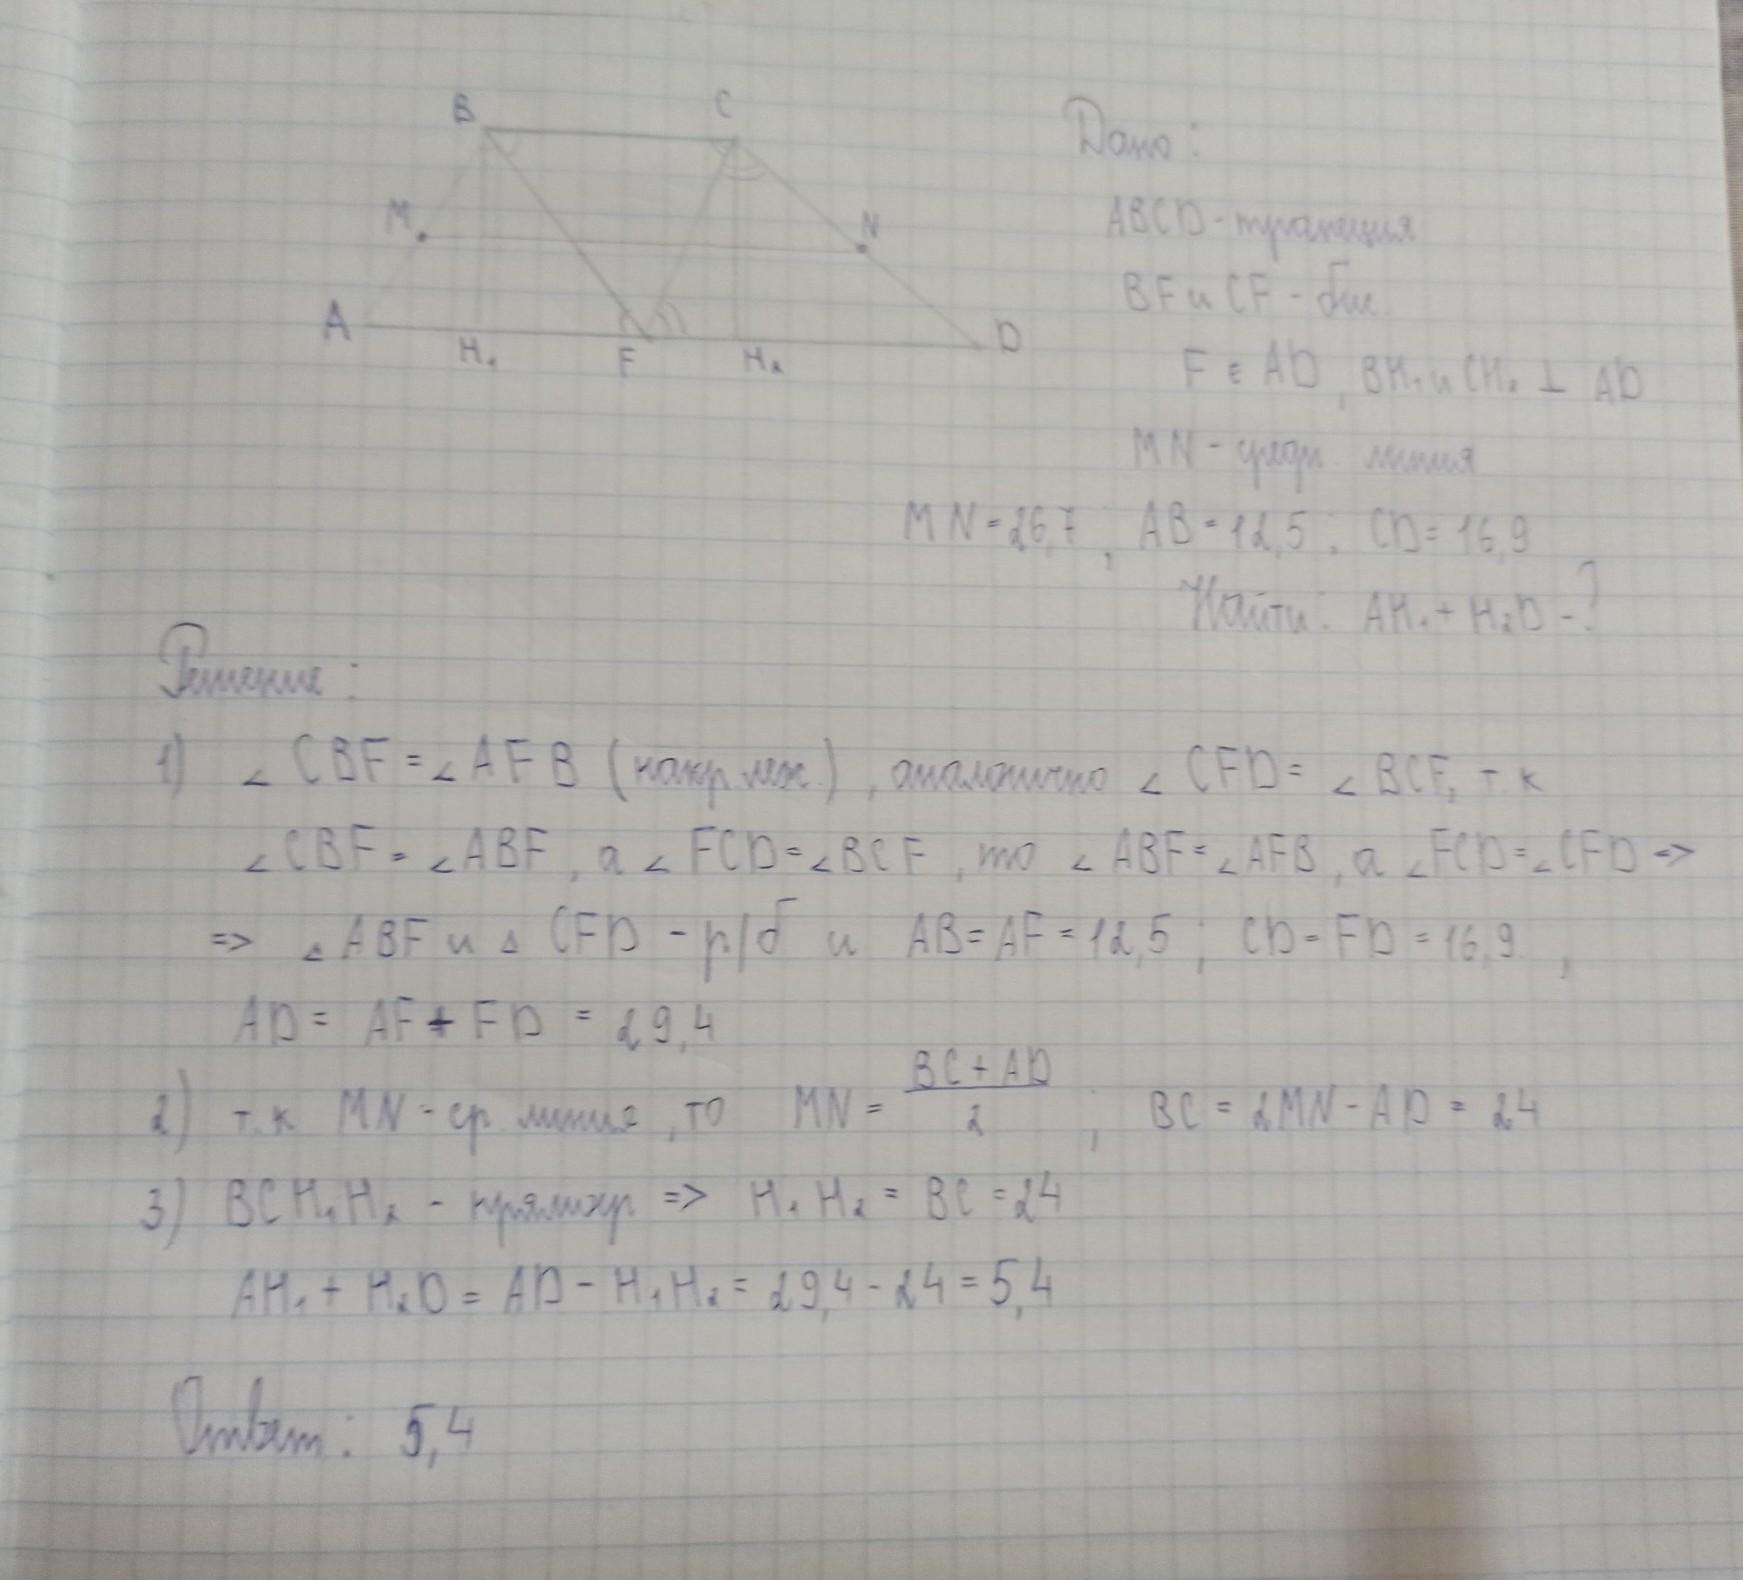 B C
M N
A H₁ F H₂ D
Дано:
ABCD - трапеция
BF и CF - бис.
F ∈ AD, BH₁ и CH₂ ⊥ AD
MN - средн. линия
MN = 26,7; AB = 12,5; CD = 16,9
Найти: AH₁ + H₂D - ?
Решение:
1) ∠ CBF = ∠ AFB (накр. леж.), аналогично ∠ CFD = ∠ BCF, т.к
∠ CBF = ∠ ABF, а ∠ FCD = ∠ BCF, то ∠ ABF = ∠ AFB, а ∠ FCD = ∠ CFD =>
=> △ ABF и △ CFD - р/б и AB = AF = 12,5; CD = FD = 16,9,
AD = AF + FD = 29,4
2) т.к MN - ср. линия, то MN = BC + AD / 2; BC = 2MN - AD = 24
3) BCH₁H₂ - прямоуг => H₁H₂ = BC = 24
AH₁ + H₂D = AD - H₁H₂ = 29,4 - 24 = 5,4
Ответ: 5,4